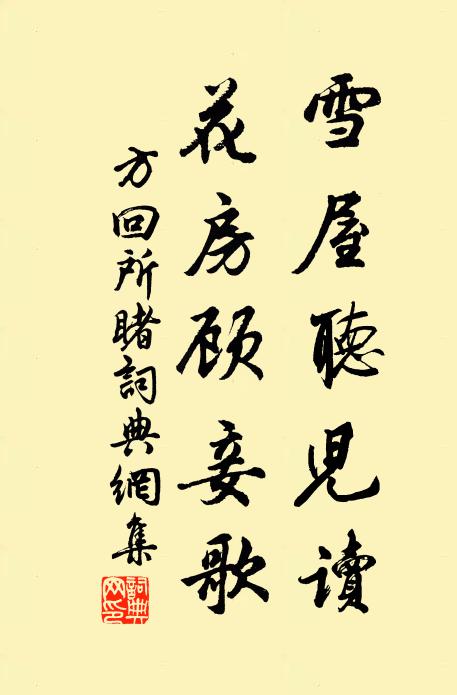 雪屋聽兒讀
花房顾妾歌
方回所睹詞典網集
詞典網印